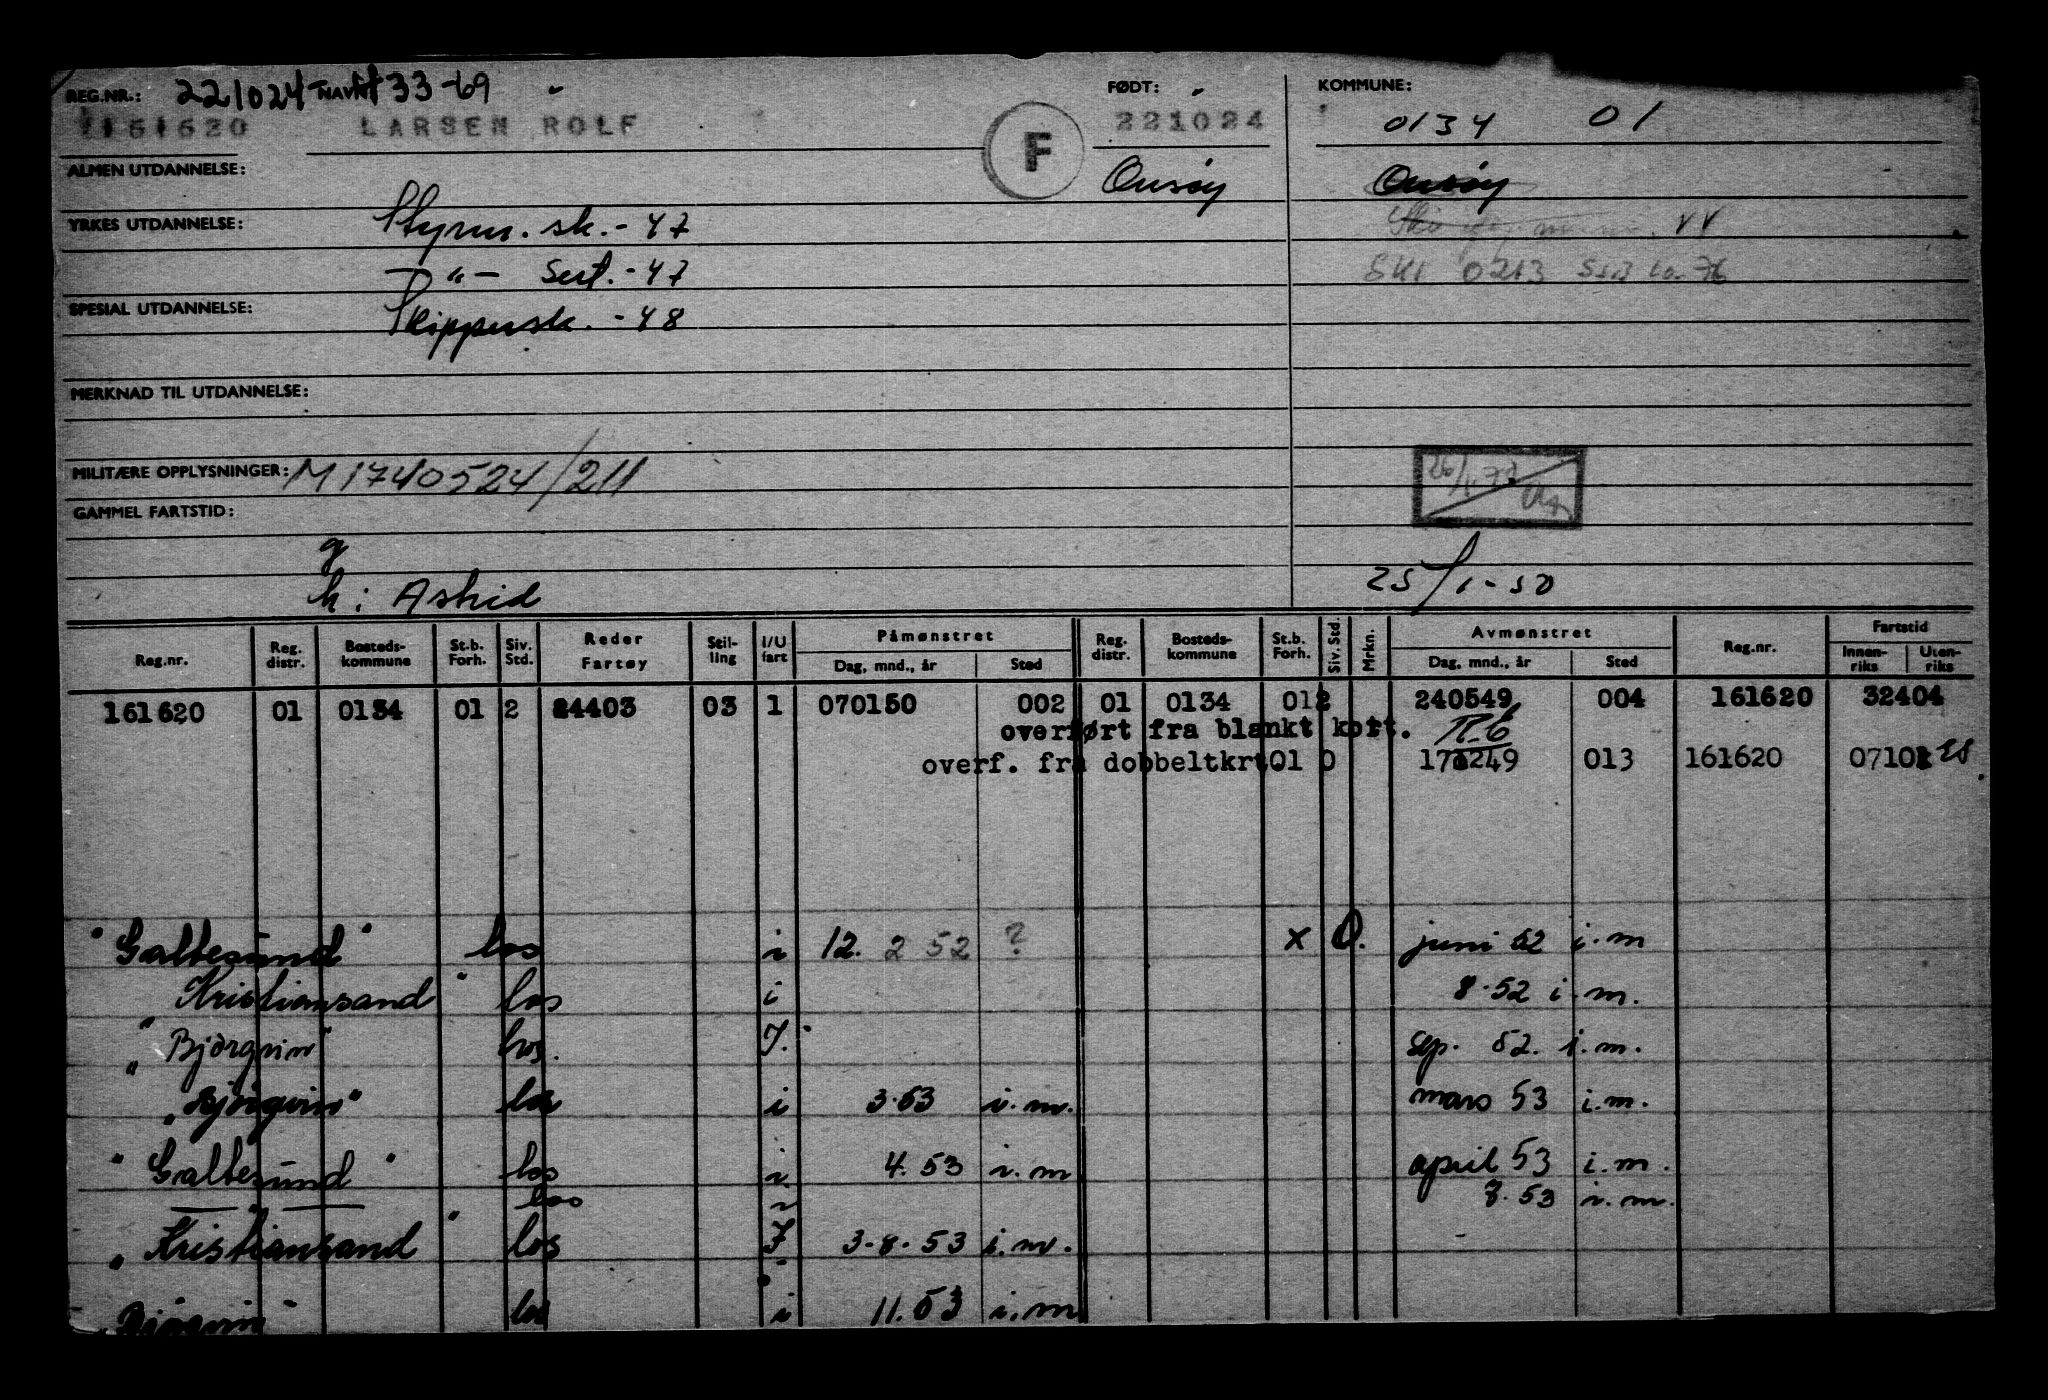 REG.NR.: 221024 NAVN 33-69 FØDT: KOMMUNE:
161620 LARSEN ROLF F 221024 0134 01
ALMEN UTDANNELSE: Onsøy Onsøy
YRKES UTDANNELSE: Styrm. sk. - 47
— " — Sert. - 47 SKI 0213 76
SPESIAL UTDANNELSE: Skippersk. - 48
MERKNAD TIL UTDANNELSE:
MILITÆRE OPPLYSNINGER: M1740524/211
GAMMEL FARTSTID:
g
h: Astrid 25/1-50
Reg.nr. Reg. distr. Bosteds-kommune St.b. Forh. Siv. Std. Reder Fartøy Stil-ling I/U fart Påmønstret Dag, mnd., år Sted Reg. distr. Bosteds-kommune St.b. Forh. Siv. Std. Mrkn. Avmønstret Dag, mnd., år Sted Reg.nr. Fartstid Innen-riks Uten-riks
161620 01 0134 01 2 24403 03 1 070150 002 01 0134 012 240549 004 161620 32404
overført fra blankt kort.
overf. fra dobbeltkrt. 01 0 170249 013 161620 0710
"Galtesund" los i 12. 2 52 ? x 0. juni 52 i.m
"Kristiansand" los i 8.52 i.m.
"Bjørgvin" los. I. sep. 52. i.m.
"Bjørgvin" los i 3.53 i.m. mars 53 i.m.
"Galtesund" los i 4.53 i.m april 53 i.m.
— " — los i 7.53 i.m.
"Kristiansand" los I 3.8.53 i.m. -
"Bjørgvin" los i 11.53 i.m